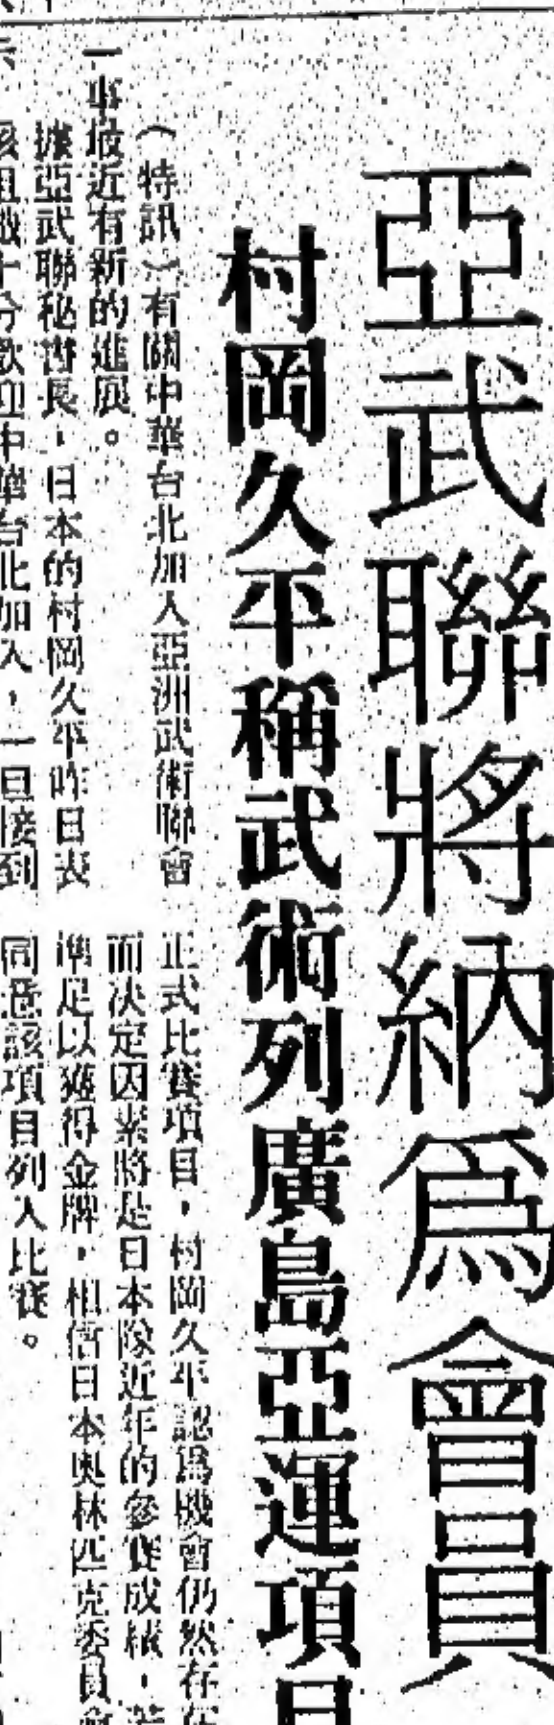 亞武聯將納爲會員
村岡久平稱武術列廣島亞運項目
（特訊）有關中華台北加入亞洲武術聯會
一事最近有新的進展。
據亞武聯秘書長，日本的村岡久平昨日表
示，該組織十分歡迎中華台北加入，一旦接到
正式比賽項目，村岡久平認爲機會仍然存在
而决定因素將是日本隊近年的參賽成績，若
準足以獲得金牌，相信日本奧林匹克委員會
同意該項目列入比賽。